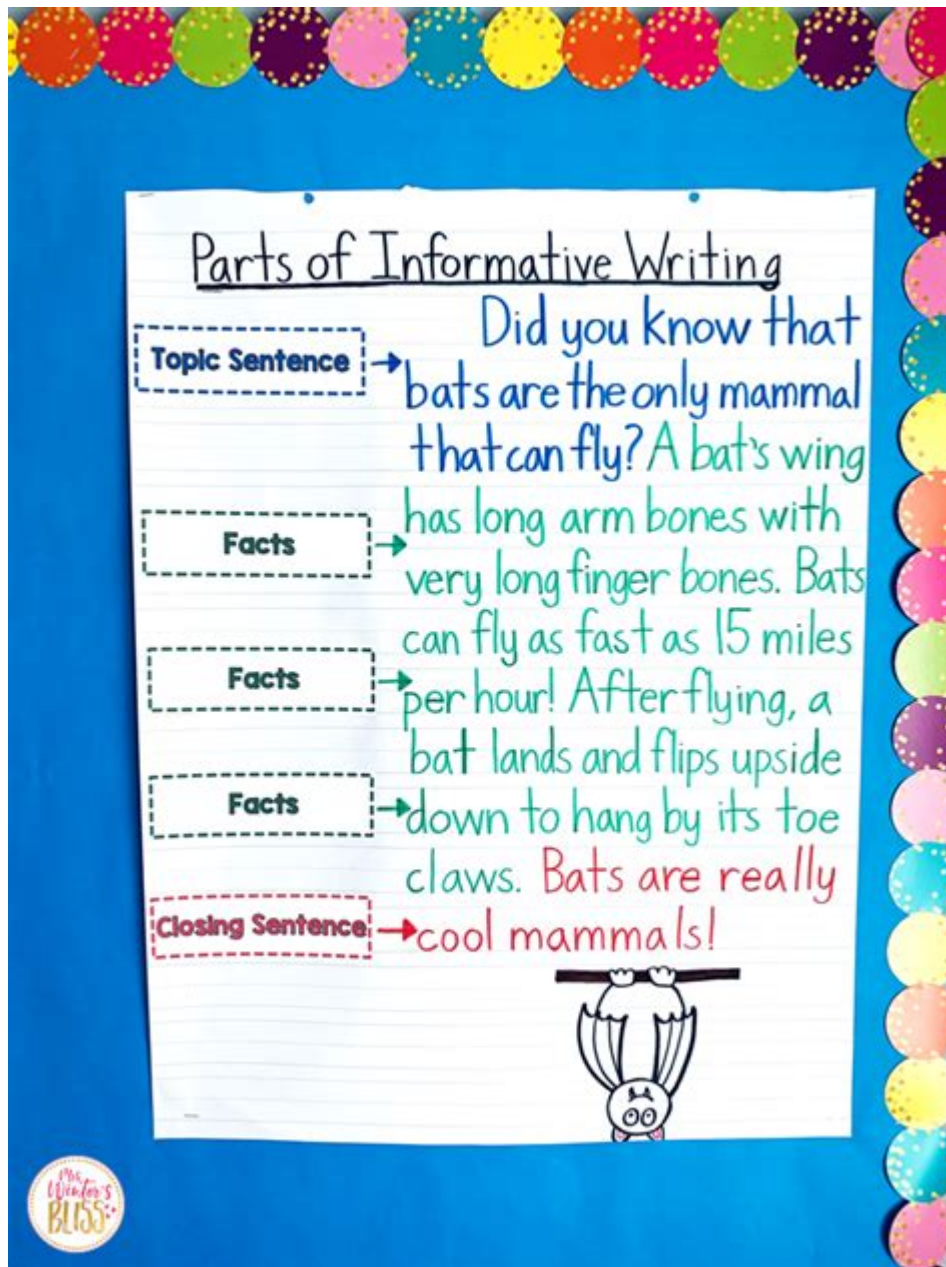 Parts of Informative Writing
Topic Sentence
Did you know that
bats are the only mammal
that can fly? A bat's wing
Facts
has long arm bones with
very long finger bones. Bats
can fly as fast as 15 miles
Facts
per hour! After flying, a
bat lands and flips upside
Facts
down to hang by its toe
claws. Bats are really
Closing Sentence
cool mammals!
Mrs.
Winter's
BLISS